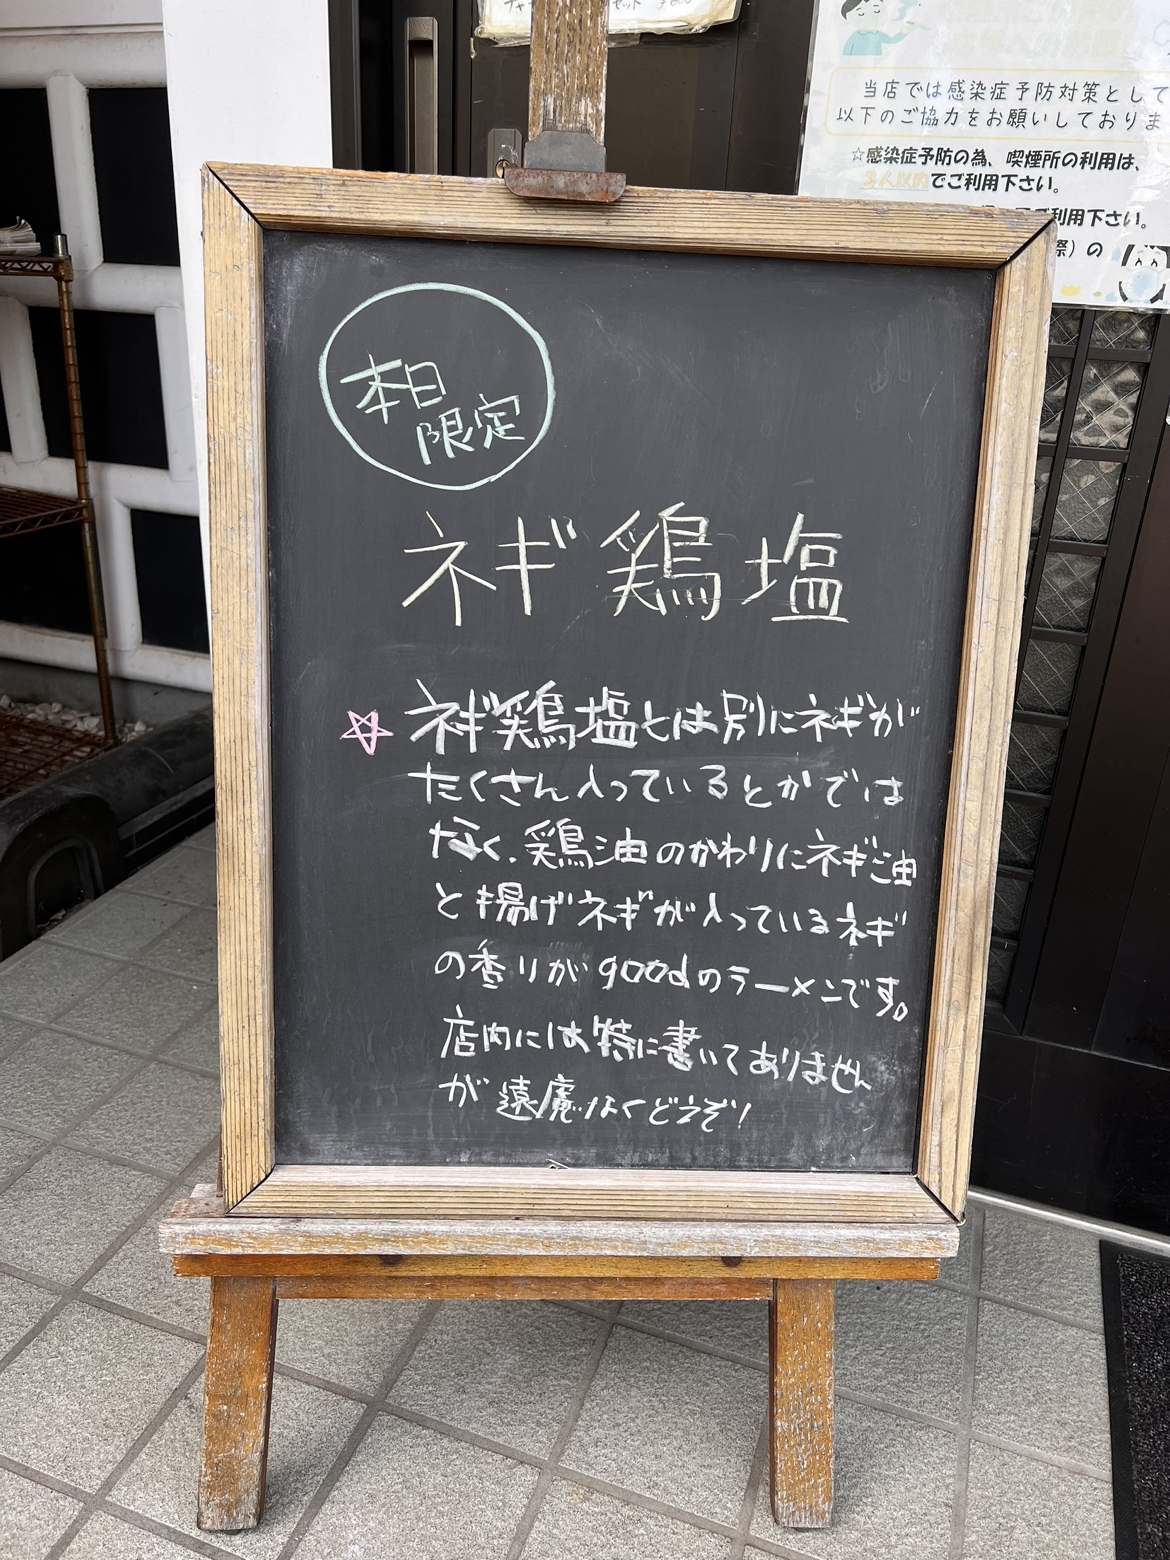 当店では感染症予防対策として
以下のご協力をお願いしておりま
☆感染症予防の為、喫煙所の利用は、
3人以内でご利用下さい。
利用下さい。
本日
限定
ネギ鶏塩
☆ネギ鶏塩とは別にネギが
たくさん入っているとかでは
なく、鶏油のかわりにネギ油
と揚げネギが入っているネギ
の香りがgoodのラーメンです。
店内には特に書いてありません
が遠慮なくどうぞ!